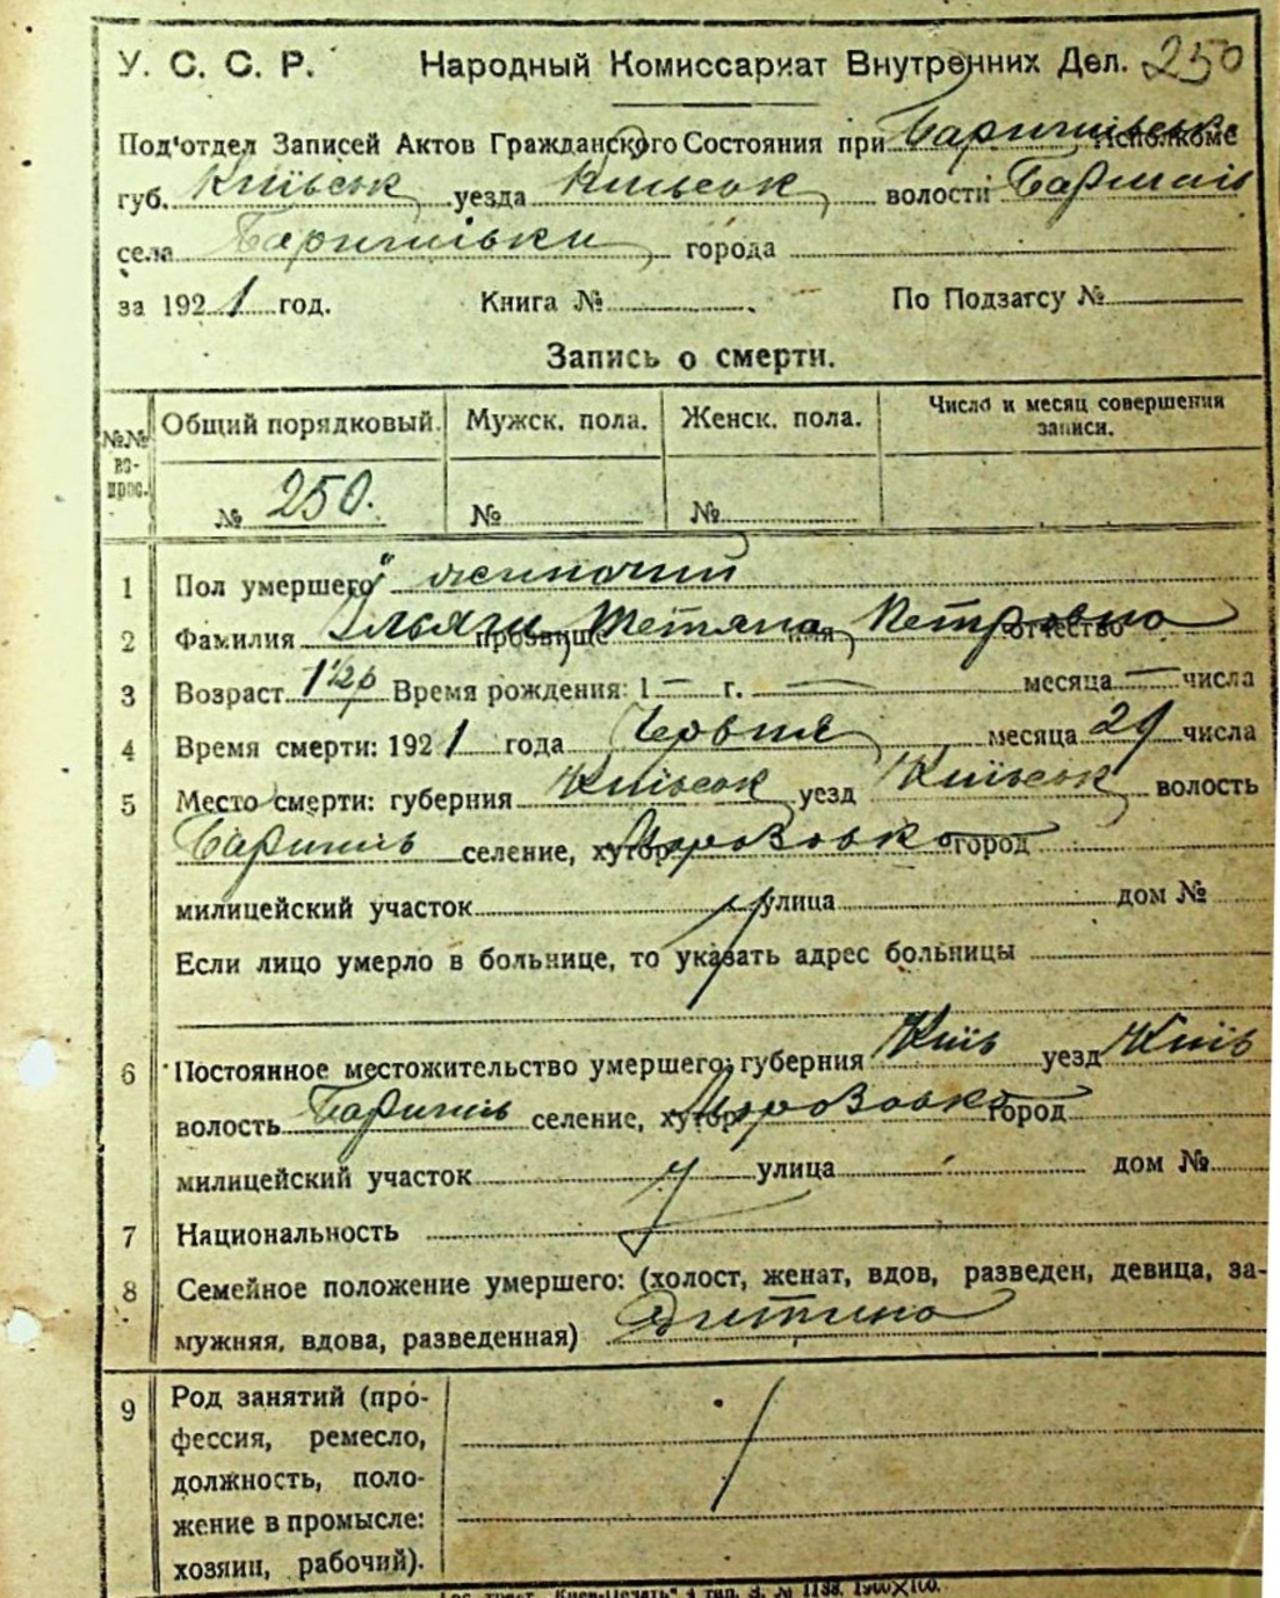 У. С. С. Р. Народный Комиссариат Внутренних Дел. 250
Под'отдел Записей Актов Гражданского Состояния при Баришівськ Исполкоме
губ. Київськ уезда Київськ волости Баришів
села Баришівки города
за 1921 год. Книга № По Подзагсу №
Запись о смерти.
№№ во-прос. Общий порядковый. Мужск. пола. Женск. пола. Число и месяц совершения записи.
№ 250. № №
1 Пол умершего жиночий
2 Фамилия прозвище Тетяна имя Петровна отчество
3 Возраст 1½ р Время рождения: 1— г. — месяца — числа
4 Время смерти: 1921 года Червня месяца 29 числа
5 Место смерти: губерния Київськ уезд Київськ волость
Баришів селение, хутор Морозовка город
милицейский участок улица дом №
Если лицо умерло в больнице, то указать адрес больницы
6 Постоянное местожительство умершего: губерния Київ уезд Київ
волость Баришів селение, хутор Морозовка город
милицейский участок улица дом №
7 Национальность
8 Семейное положение умершего: (холост, женат, вдов, разведен, девица, за-
мужняя, вдова, разведенная) Дитина
9 Род занятий (про-
фессия, ремесло,
должность, поло-
жение в промысле:
хозяин, рабочий).